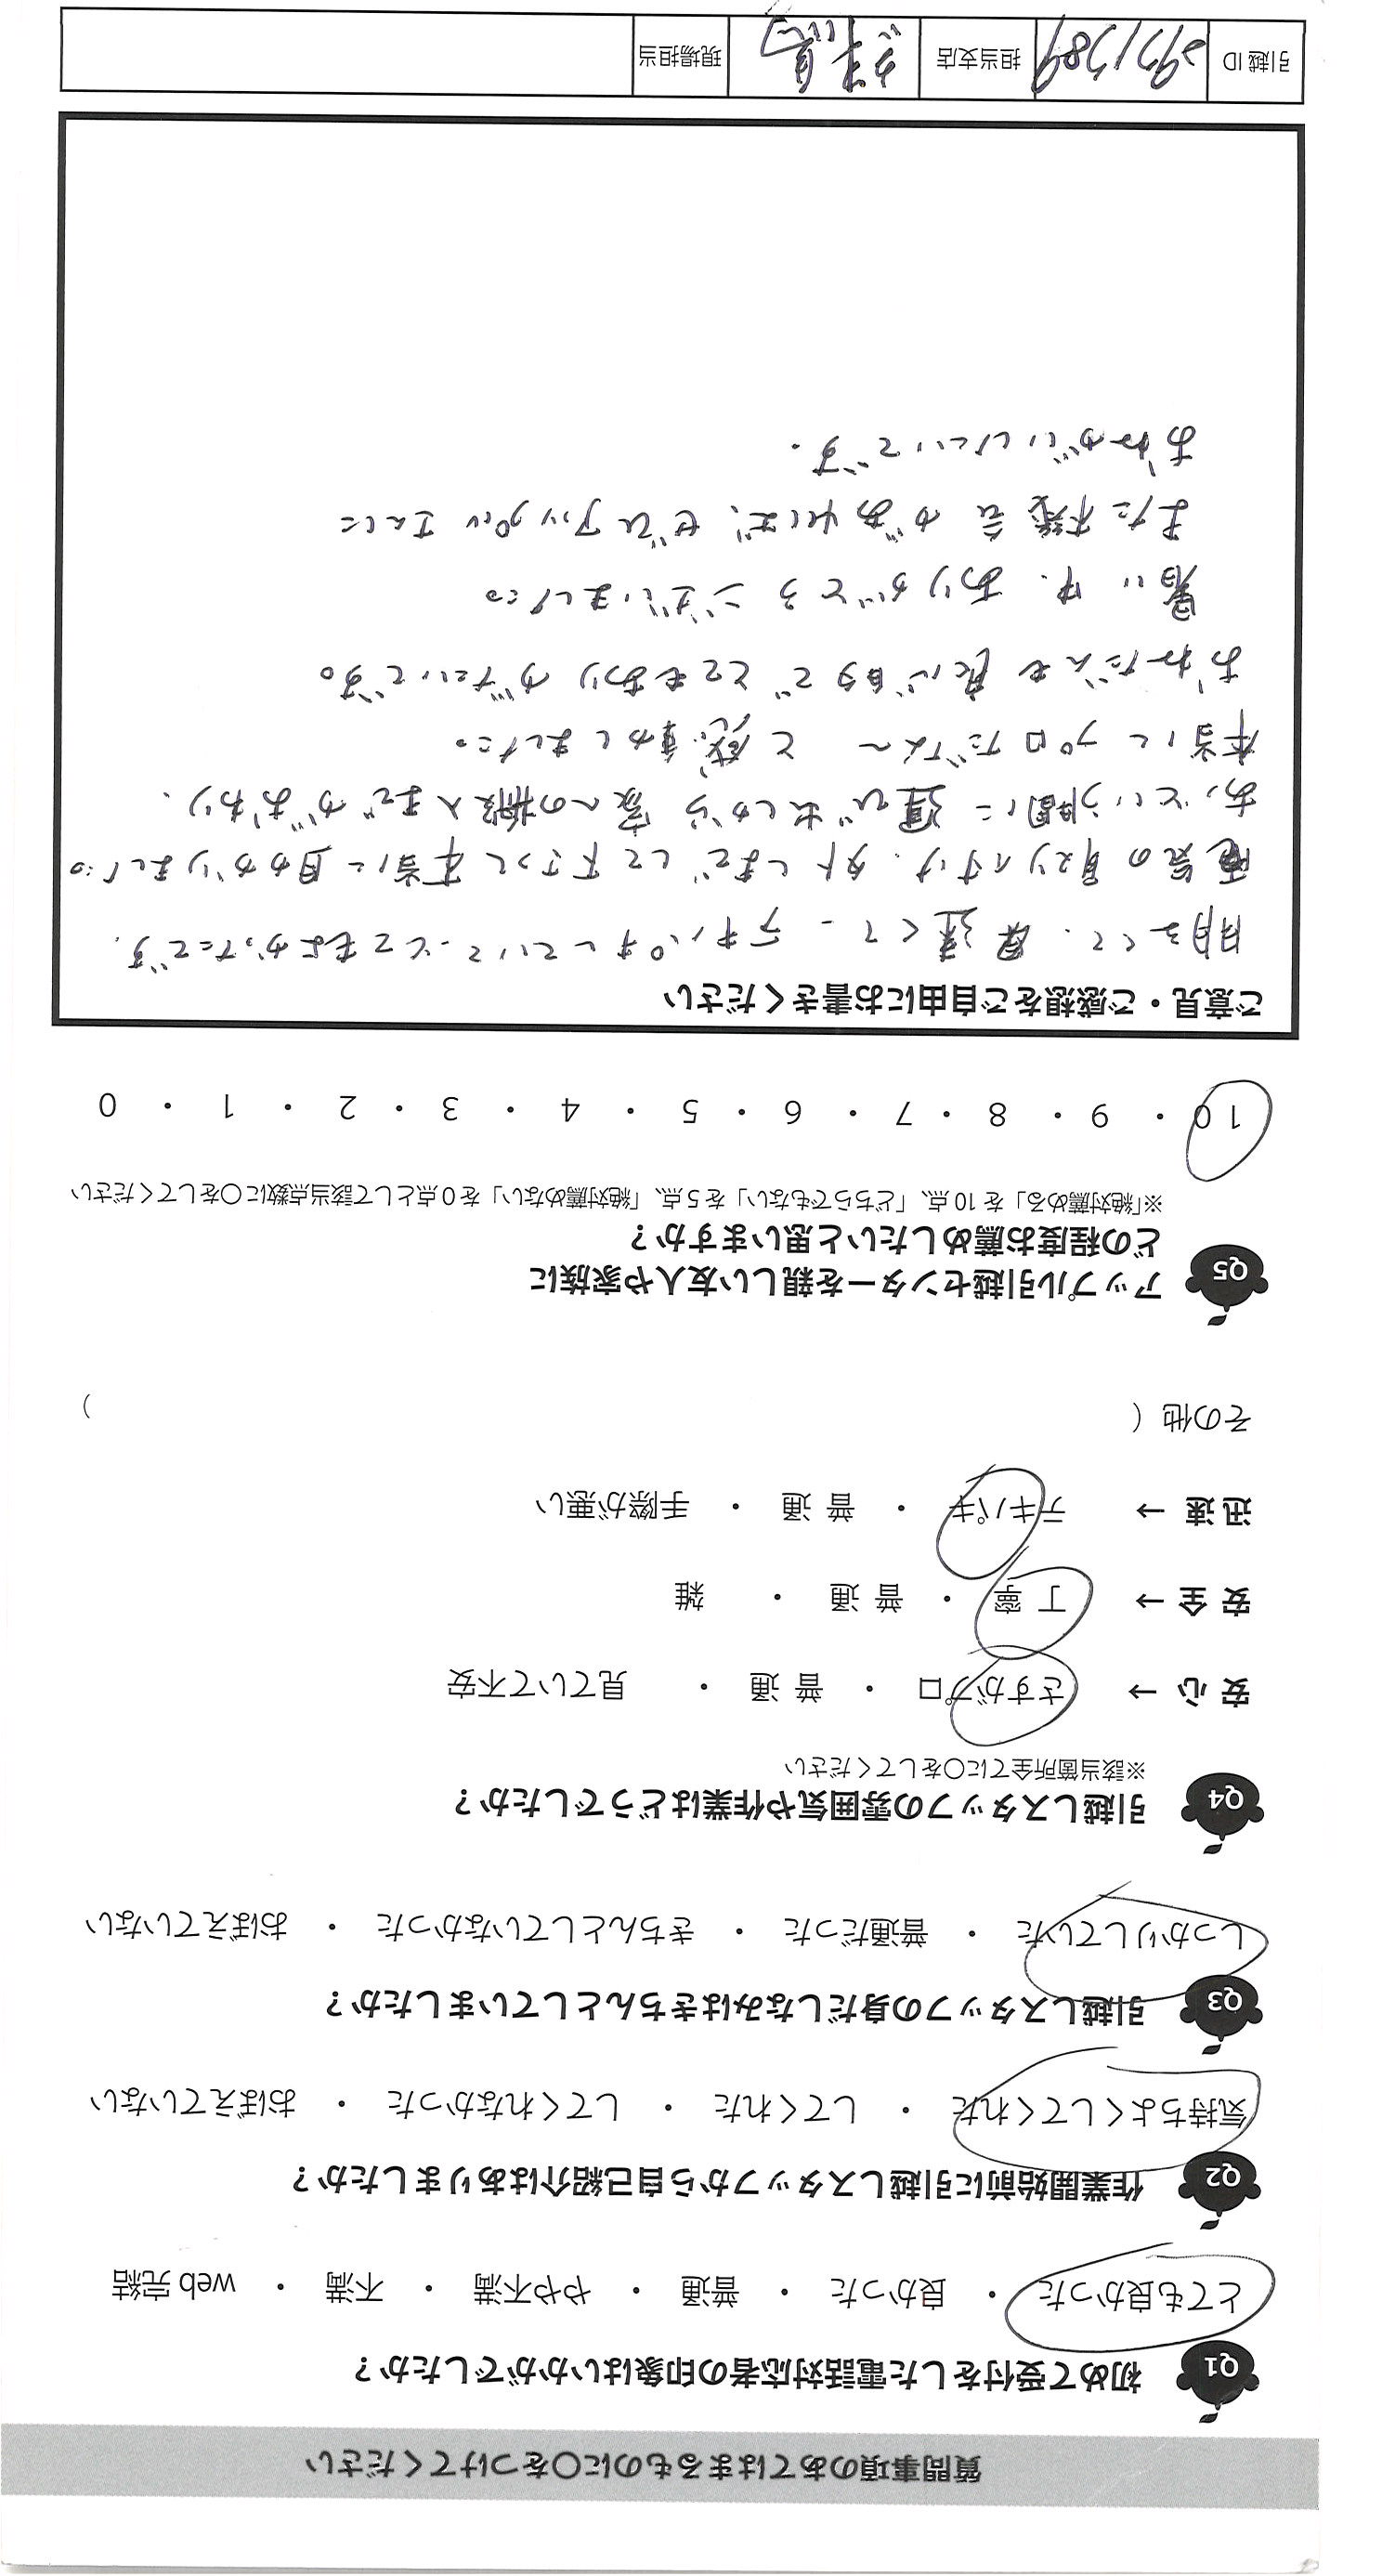 質問事項のあてはまるものに〇をつけてください
Q1 初めて受付をした電話対応者の印象はいかがでしたか？
とても良かった ・ 良かった ・ 普通 ・ やや不満 ・ 不満 ・ web 完結
Q2 作業開始前に引越しスタッフから自己紹介はありましたか？
気持ちよくしてくれた ・ してくれた ・ してくれなかった ・ おぼえていない
Q3 引越しスタッフの身だしなみはきちんとしていましたか？
しっかりしていた ・ 普通だった ・ きちんとしていなかった ・ おぼえていない
Q4 引越しスタッフの雰囲気や作業はどうでしたか？
※該当箇所全てに〇をしてください
安心 → さすがプロ ・ 普通 ・ 見ていて不安
安全 → 丁寧 ・ 普通 ・ 雑
迅速 → テキパキ ・ 普通 ・ 手際が悪い
その他（ ）
Q5 アップル引越センターを親しい友人や家族に
どの程度お薦めしたいと思いますか？
※「絶対薦める」を 10 点、「どちらでもない」を 5 点、「絶対薦めない」を 0 点として該当点数に〇をしてください
10 ・ 9 ・ 8 ・ 7 ・ 6 ・ 5 ・ 4 ・ 3 ・ 2 ・ 1 ・ 0
ご意見・ご感想をご自由にお書きください
明るくて、 テキパキしていて、とてもよかったです。
電気の取り付け、外しまでして下さって本当に助かりました。
あっという間に運び出しから家への搬入までがおわり、
本当にプロだな〜 と感動しました。
おねだんも良心的で とてもありがたいです。
暑い中、ありがとうございました。
また機会があれば、ぜひアップルさんに
おねがいしたいです。
引越 ID 担当支店 現場担当